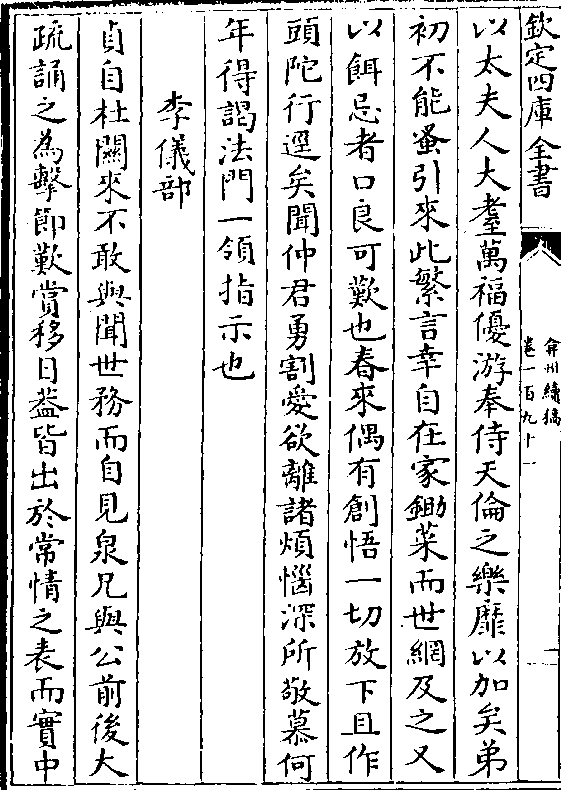 欽定四庫全書
弇州續稿
卷一百九十一
以太夫人大耋萬福優游奉侍天倫之樂靡以加矣弟
初不能蚤引來此繁言幸自在家鋤菜而世網及之又
以餌忌者口良可歎也春來偶有創悟一切放下且作
頭陀行逕矣聞仲君勇割愛欲離諸煩惱深所敬慕何
年得謁法門一領指示也
李儀部
貞自杜關來不敢與聞世務而自見泉兄與公前後大
疏誦之為擊節歎賞移日葢皆出於常情之表而實中